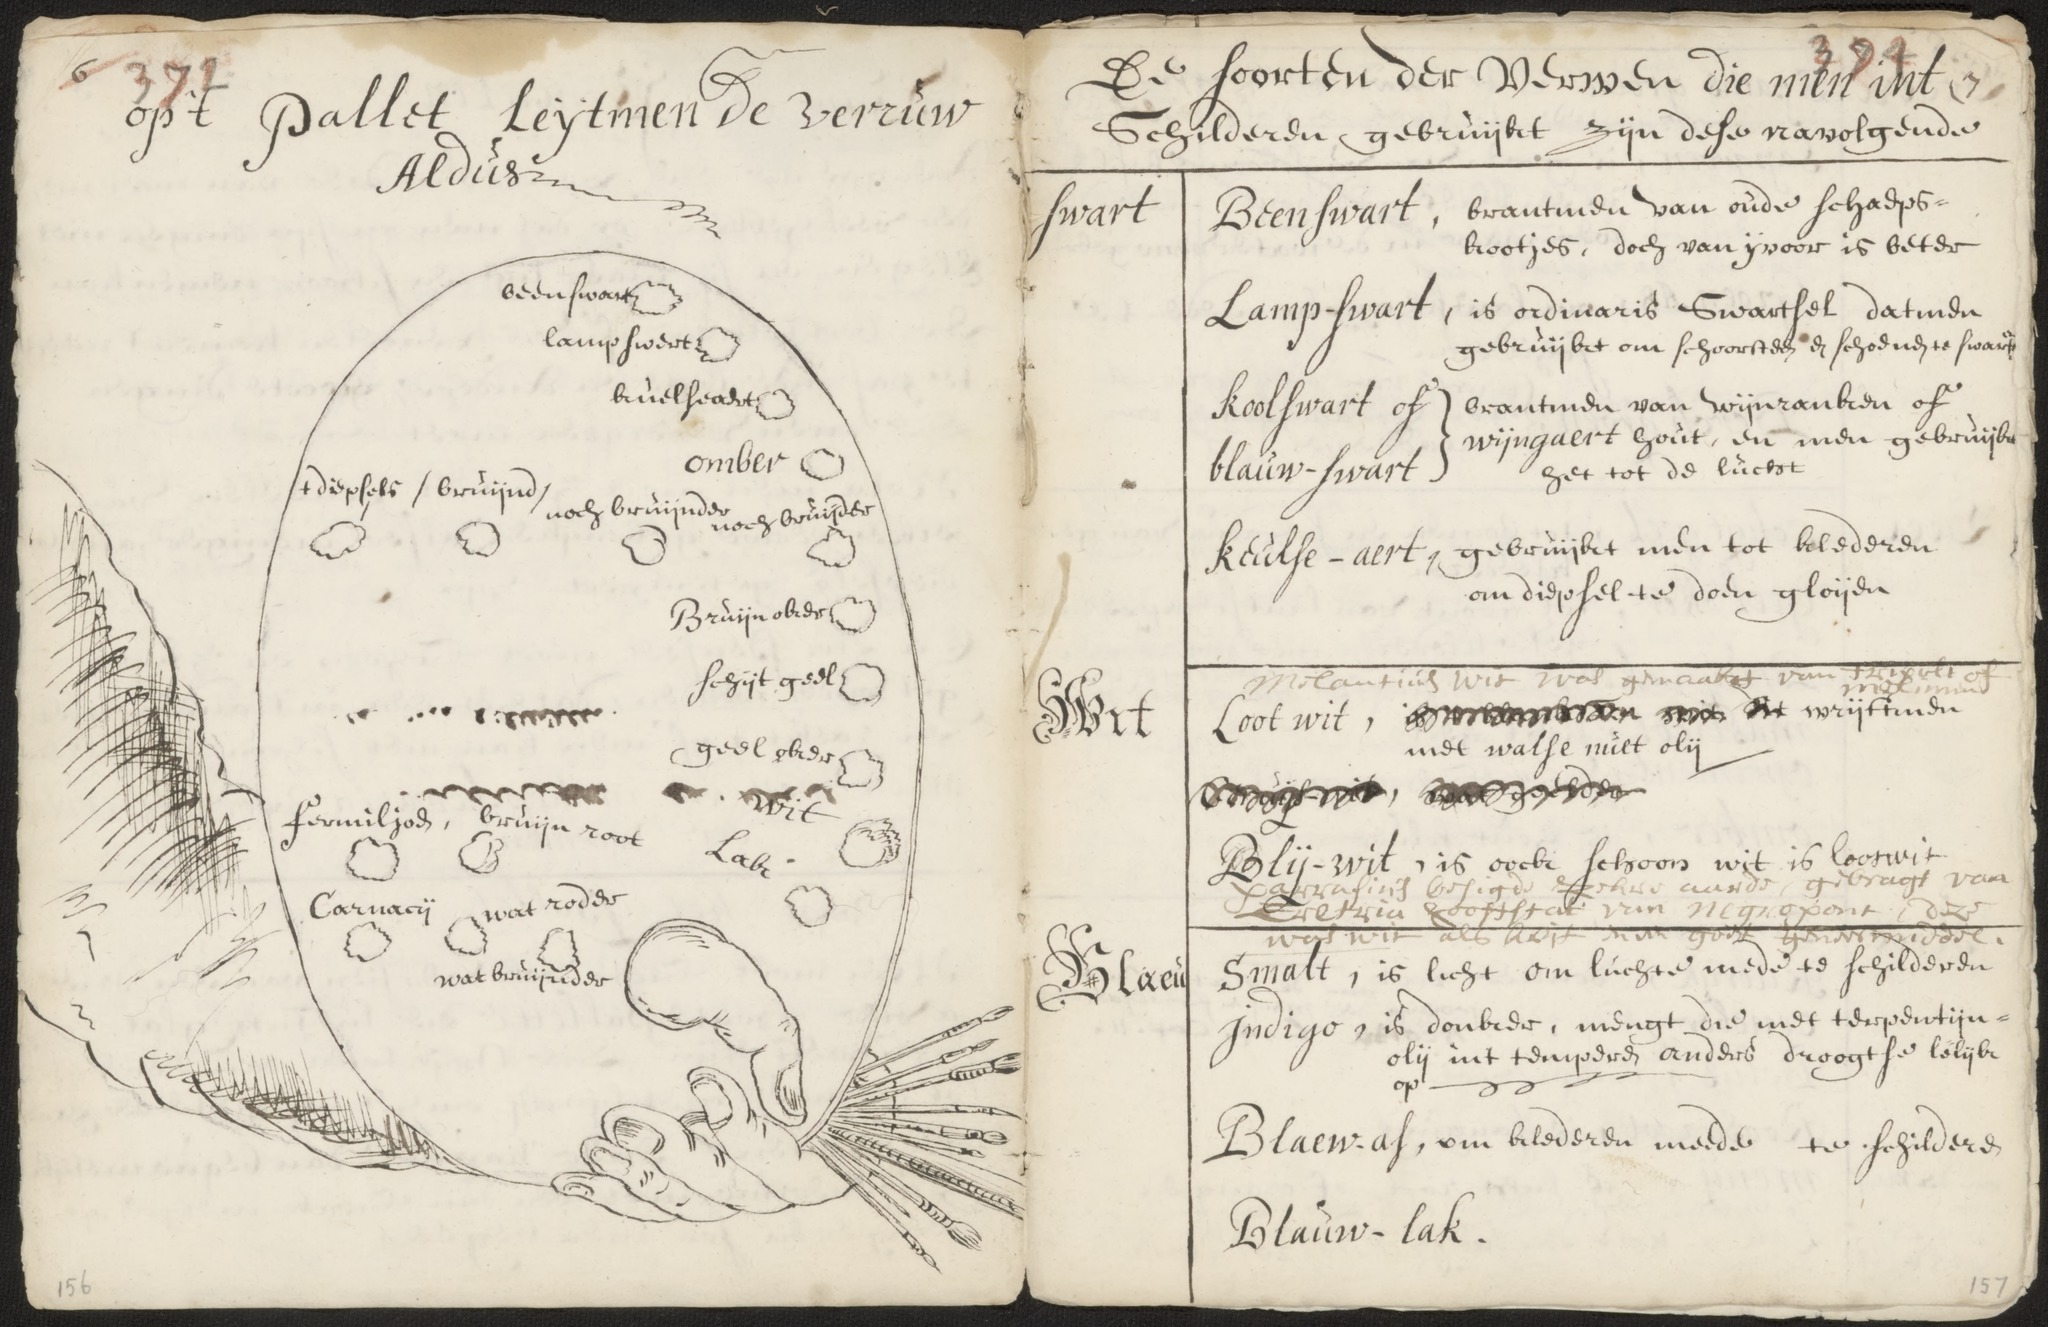 6
371
op't Pallet Leÿtmen De verrúw
Aldús
beenswart
lampswert
kúelseaert
omber
tdiepsels / brúijnd /
noch brúijnder
noch brúijder
Brúijn oker
schijt geel
geel oker
wit
fermiljoen, brúijn root
Lak
Carnacij wat roder
wat brúijnder
156
371
De soorten der Verwen die men int 7
Schilderen gebrúijkt zijn dese navolgende
swart
Beenswart, brantmen van oúde schaeps-
kootjes, doch van ÿvoor is beter
Lamp-swart, is ordinaris Swartsel datmen
gebrúijkt om schoorsteen en schoenen te swarten
koolswart of brantmen van wijnranken of
blaúw-swart wijngaert hoút, en men gebrúijkt
het tot de lúcht
keúlse-aert, gebrúijkt men tot klederen
om diepsel te doen gloijen
Wit
Melantiús wit was gemaakt van tripelt of
Loot wit, wrijftmen
met walse núet olij
Blij-wit, is oock schoon wit is lootwit
Parrasiús besigde aarde, gebragt van
Eretria hooftstat van Negropont, dese
was wit als krijt een goet geneesmiddel.
Blaeú
Smalt, is licht om lúchte mede te schilderen
Jndigo, is donker, mengt die met terpentijn-
olij int temperen anders droogtse lelijk
op
Blaew-as, om klederen meede te schilderen
Blaúw-lak.
157